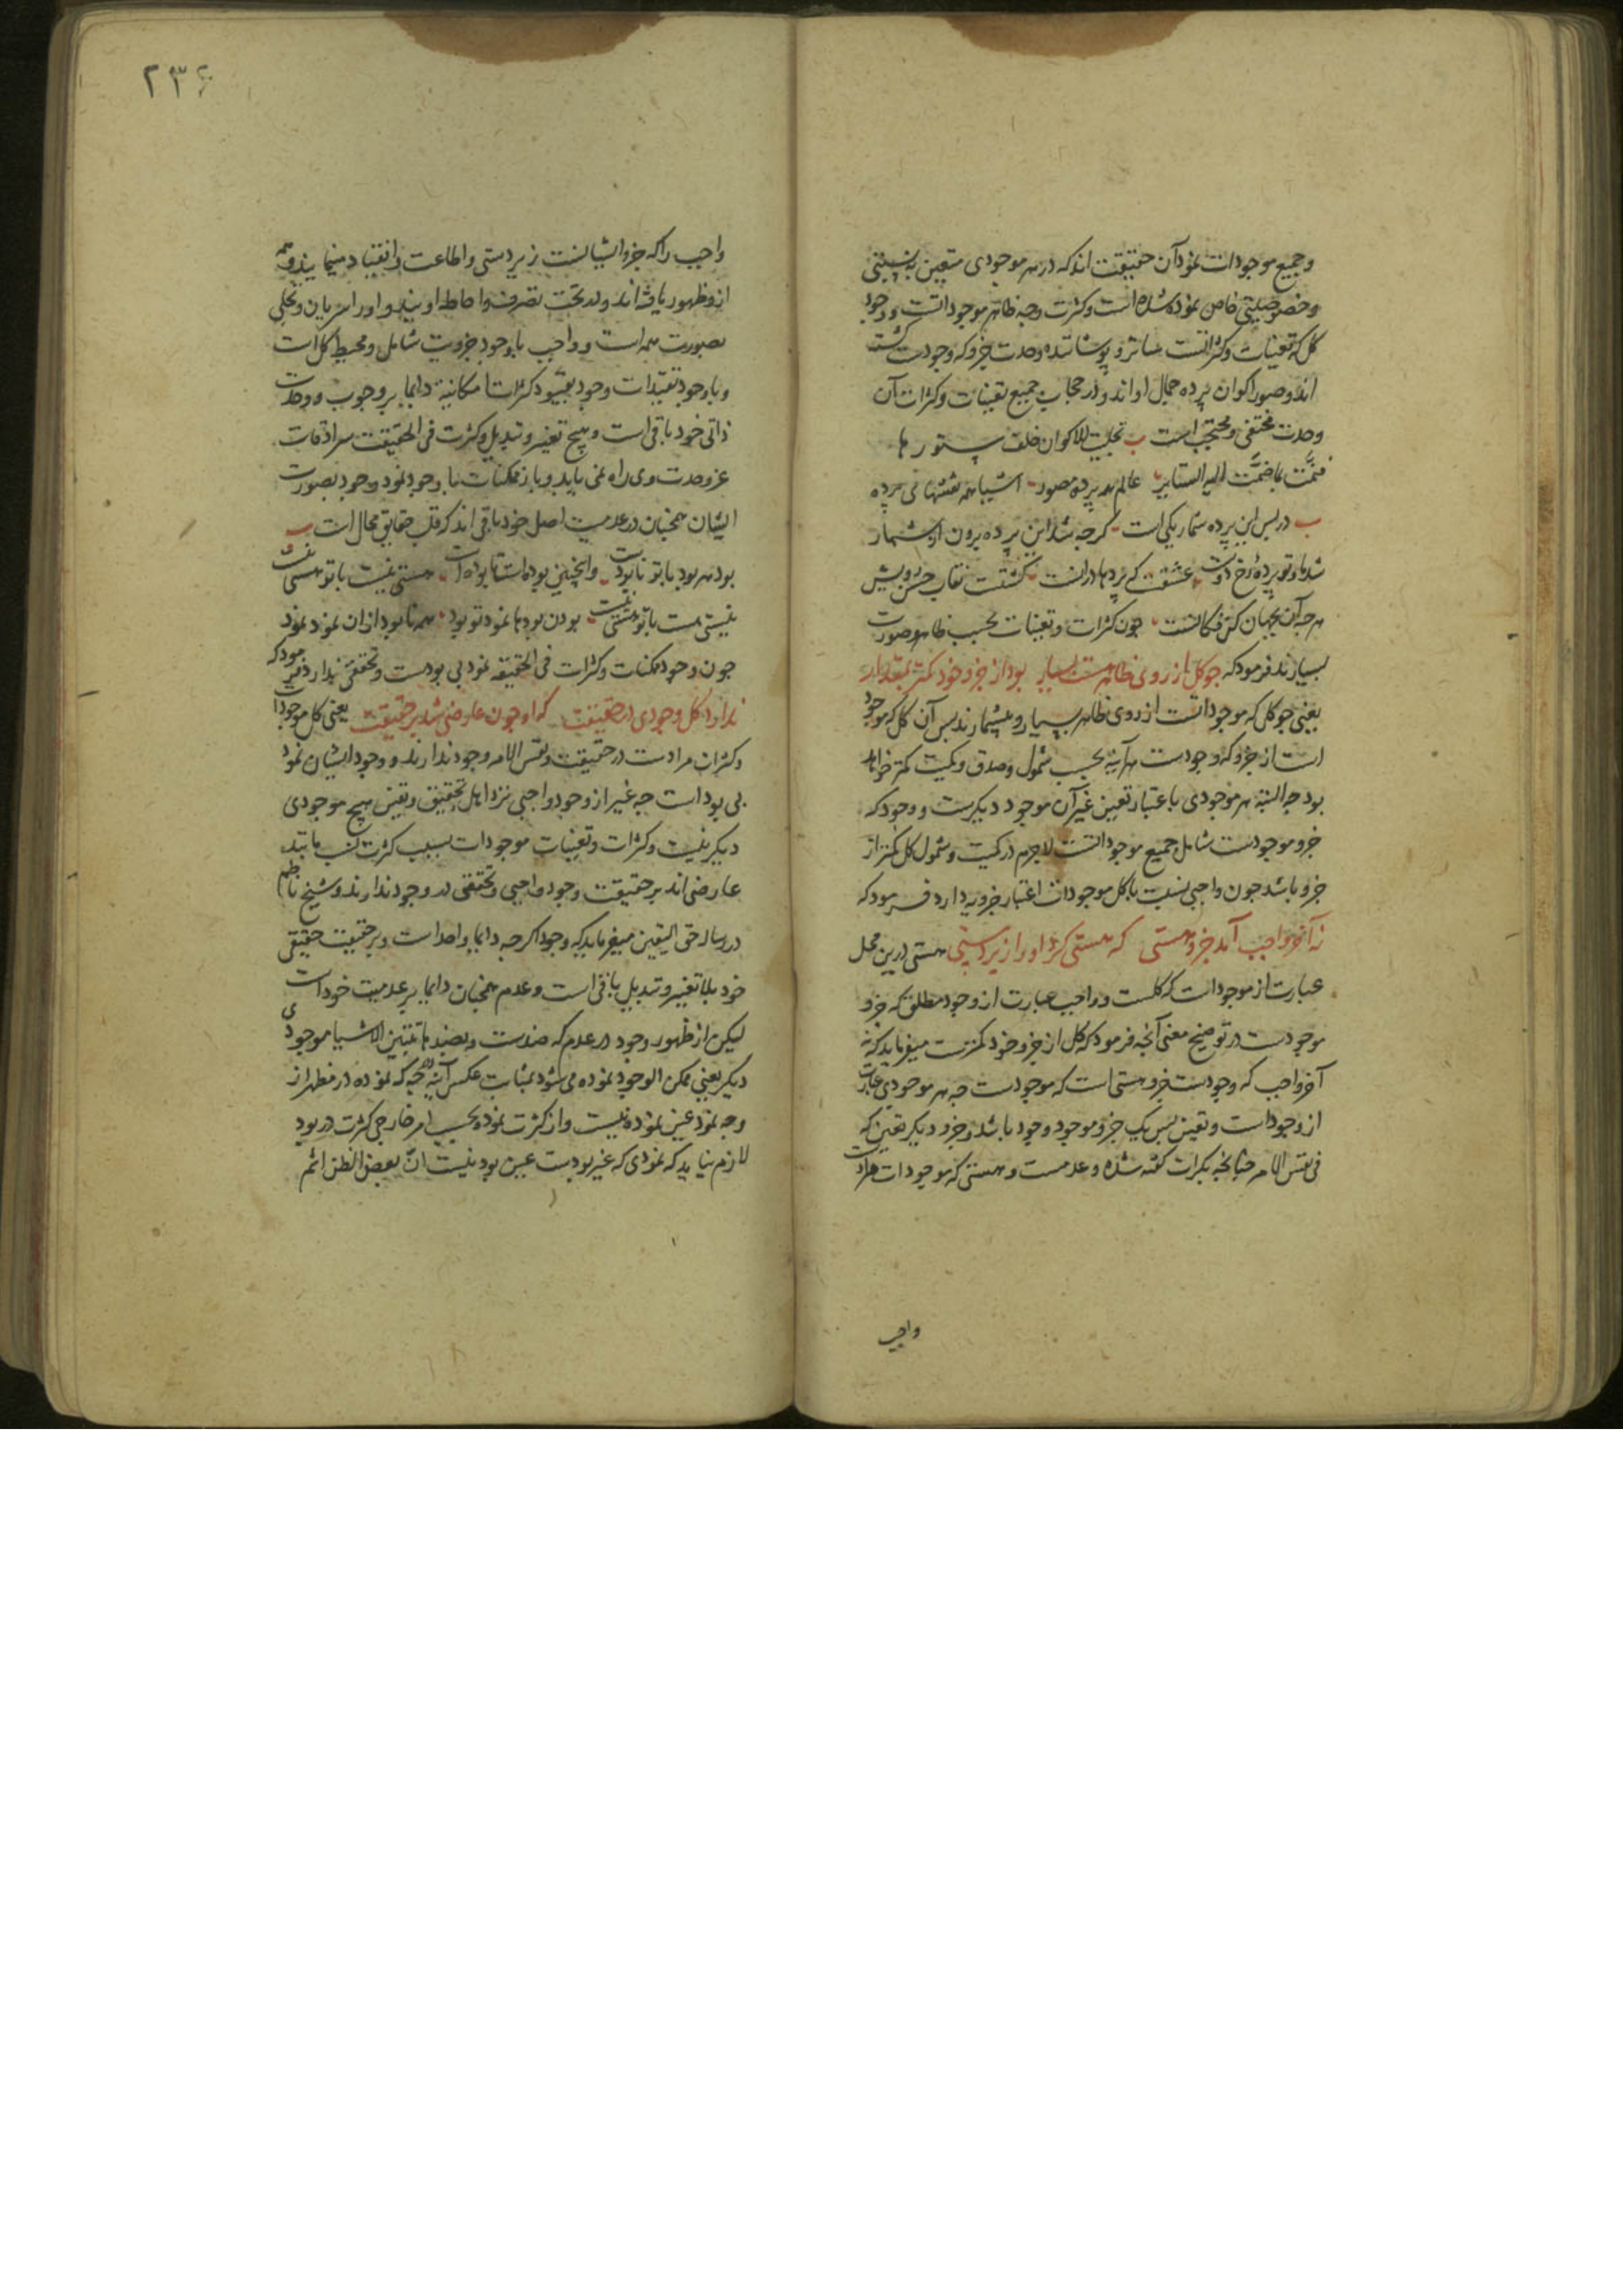 وجمیع موجودات نمود آن حقیقت اند که در هر موجودی متعین به نسبتی
و خصوصیتی خاص نموده شده است و کثرت وجه ظاهر موجوداتست و وجود
کل که تعینات و کثراتست ساتر و پوشاننده وحدت جزو که وجودست گشته
اند و صور اکوان پرده جمال او اند و در حجاب جمیع تعینات و کثرات آن
وحدت مختفی و محتجب است تجلیت للاکوان خلف ستورها
فنمّت بما ضمّت الیه الستایر عالم همه پرده مصور اشیا همه نقشهای پرده
در پس این پرده شمار یکی است گرچه شد این پرده برون از شمار
شد ما و تو پرده رخ دوست عشقست که پردها دراند گشتست نقاب حسن رویش
هر چه آن بجهان کن فکانست چون کثرات و تعینات بحسب ظاهر و صورت
بسیارند فرمود که چو کل از روی ظاهر هست بسیار بود از جزو خود کمتر بمقدار
یعنی چو کل که موجوداتست از روی ظاهر بسیار و بیشمارند پس آن کل که موجود
است از جزو که وجودست هر آینه بحسب شمول و صدق و کمیت کمتر خواهد
بود چه البته هر موجودی باعتبار تعین غیر آن موجود دیگرست و وجود که
جزو موجودست شامل جمیع موجوداتست لاجرم در کمیت و شمول کل کمتر از
جزو باشد چون واجبی نسبت با کل موجودات اعتبار جزویه دارد فرمود که
نه آخر واجب آمد جزو هستی که هستی کرد او را زیردستی هستی درین محل
عبارت از موجوداست که کلست و واجب عبارت از وجود مطلق که جزو
موجودست در توضیح معنی آنچه فرمود که کل از جزو خود کمترست میفرماید که نه
آخر واجب که وجودست جزو هستی است که موجودست چه هر موجودی عبارت
از وجود است و تعین پس یک جزو موجود وجود باشد و جزو دیگر تعین که
فی نفس الامر چنانچه بکرات گفته شده و عدمست و هستی که موجودات مرادست
واجب
۲۳۶
واجب را که جزو ایشانست زیردستی و اطاعت و انقیاد مینمایند و همه
از و ظهور یافته اند و در تحت تصرف و احاطه اویند و او را سریان و تجلی
بصورت همه است و واجب با وجود جزویت شامل و محیط کل است
و با وجود تقیدات وجود بقیود کثرات امکانیه دایما بر وجوب و وحدت
ذاتی خود باقی است و هیچ تغیر و تبدیل و کثرت فی الحقیقت سرادقات
عز وحدت وی راه نمی یابد و باز ممکنات با وجود نمود وجود بصورت
ایشان همچنان در عدمیت اصل خود باقی اند که قلب حقایق محال است
بود هر بود با تو نابودست وینچنین بوده است تا بوده است هستی نیست با تو هستی نیست
نیستی هست با تو هستی نیست بودن بودها نمود تو بود همه نابود از آن نمود نمود
چون وجود ممکنات و کثرات فی الحقیقه نمود بی بودست و تحققی ندارد فرمود که
ندارد کل وجودی در حقیقت که او چون عارضی شد بر حقیقت یعنی کل موجودات
و کثرات مرادست در حقیقت و نفس الامر وجود ندارند و وجود ایشان نمود
بی بود است چه غیر از وجود واجبی نزد اهل تحقیق و یقین هیچ موجودی
دیگر نیست و کثرات و تعینات موجودات بسبب کثرت نسب مانند
عارضی اند بر حقیقت وجود واجبی و تحققی در وجود ندارند و شیخ ناظم
در رساله حق الیقین میفرماید که وجود اگر چه دایما واحد است و بر حقیقت حقیقی
خود بلا تغیر و تبدیل باقی است و عدم همچنان دایما بر عدمیت خود است
لیکن از ظهور وجود در عدم که ضدست و بضدها تتبین الاشیا موجودی
دیگر یعنی ممکن الوجود نموده می شود بمثابت عکس آینه چه که نموده در مظهر از
وجه نمود عین نموده نیست و از کثرت نموده بحسب امر خارجی کثرت در بود
لازم نیاید که نمودی که غیر بودست عین بود نیست انّ بعض الظن اثم